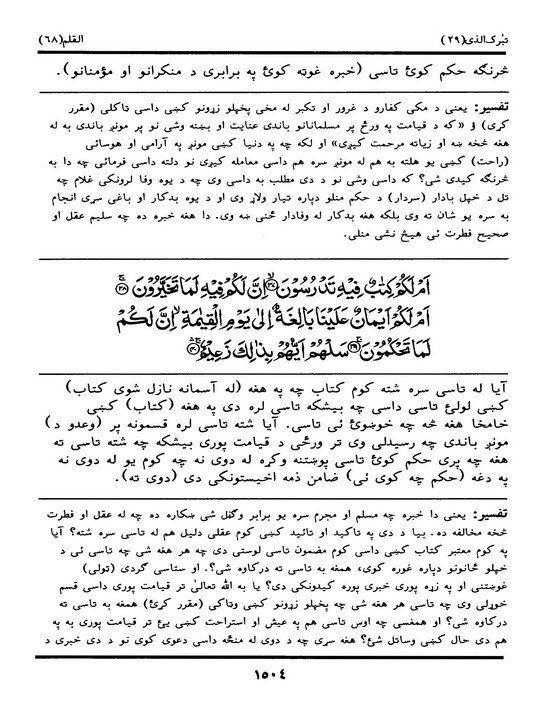 تبٰرک الذي (٢٩) القلم (٦٨)
څرنګه حکم کوئ تاسی (خبره غوټه کوئ په برابری د منکرانو او مؤمنانو).
تفسیر: یعنی د مکی کفارو د غرور او تکبر له مخی پخپلو زړونو کښی داسی ټاکلی (مقرر
کړی) ؤ «که د قیامت په ورځ پر مسلمانانو باندی عنایت او بښنه وشی نو پر مونږ باندی به له
هغه څخه ښه او زیاته مرحمت کیږی» او لکه چه په دنیا کښی مونږ په آرامی او هوسائی
(راحت) کښی یو هلته به هم له مونږ سره هم داسی معامله کیږی نو دلته داسی فرمائی چه دا به
څرنګه کیدی شی؟ که داسی وشی نو د دی مطلب به داسی وی چه د یوه وفا لرونکی غلام چه
تل د خپل بادار (سردار) د حکم منلو دپاره تیار ولاړ وی او د یوه بدکار او باغی سړی انجام
به سره یو شان ته وی بلکه هغه بدکار له وفادار ځنی ښه وی. دا هغه خبره ده چه سلیم عقل او
صحیح فطرت ئی هیڅ نشی منلی.
اَمْ لَكُمْ كِتٰبٌ فِيْهِ تَدْرُسُوْنَ ﴿٣٧﴾ اِنَّ لَكُمْ فِيْهِ لَمَا تَخَيَّرُوْنَ ﴿٣٨﴾
اَمْ لَكُمْ اَيْمَانٌ عَلَيْنَا بَالِغَةٌ اِلٰى يَوْمِ الْقِيٰمَةِ اِنَّ لَكُمْ
لَمَا تَحْكُمُوْنَ ﴿٣٩﴾ سَلْهُمْ اَيُّهُمْ بِذٰلِكَ زَعِيْمٌ ﴿٤٠﴾
آیا له تاسی سره شته کوم کتاب چه په هغه (له آسمانه نازل شوی کتاب)
کښی لولئ تاسی داسی چه بیشکه تاسی لره دی په هغه (کتاب) کښی
خامخا هغه څه چه خوښوئ ئی تاسی. آیا شته تاسی لره قسمونه پر (وعدو د)
مونږ باندی چه رسیدلی وی تر ورځی د قیامت پوری بیشکه چه شته تاسی ته
هغه چه پری حکم کوئ تاسی پوښتنه وکړه له دوی نه چه کوم یو له دوی نه
په دغه (حکم چه کوی ئی) ضامن ذمه اخیستونکی دی (دوی ته).
تفسیر: یعنی دا خبره چه مسلم او مجرم سره یو برابر وګڼل شی ښکاره ده چه له عقل او فطرت
څخه مخالفه ده. بیا د دی په تاکید او تائید کښی کوم عقلی دلیل هم له تاسی سره شته؟ آیا
په کوم معتبر کتاب کښی داسی کوم مضمون تاسی لوستی دی چه هر هغه شی چه تاسی ئی د
خپلو ځانونو دپاره غوره کوی، همغه به تاسی ته درکاوه شی؟. او ستاسی ګردی (ټولی)
غوښتنی او په زړه پوری خبری پوره کیدونکی دی؟ یا به الله تعالیٰ تر قیامت پوری داسی قسم
خوړلی وی چه تاسی هر هغه شی چه پخپلو زړونو کښی وټاکی (مقرر کړئ) همغه به تاسی ته
درکاوه شی؟ او همغسی چه اوس تاسی هم په عیش او استراحت کښی یئ تر قیامت پوری به په
هم دی حال کښی وساتل شئ؟ هغه سړی چه د دوی له منځه داسی دعوی کوی نو د دی خبری د
١٥٠٤